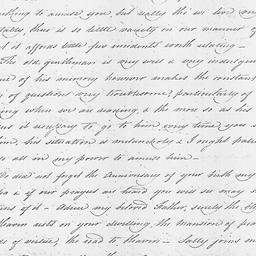 to amuse you but really the we live
there is so little variety in our manner of
it affords little few incidents worth relating —
The old gentleman is very well & very indulgent
of his memory however makes the constant
of questions very troublesome, particularly of
when we are reading, & the more so as his
it necessary to go to him every time you
him, his situation is melancholy & I ought
all in my power to amuse him —
did not forget the Anniversary of your birth my
& if our prayers are heard you will see many
of it — Adieu my beloved Father, surely the
Heaven rests on your dwelling, the mansion of
of virtue, the road to Heaven — Sally joins